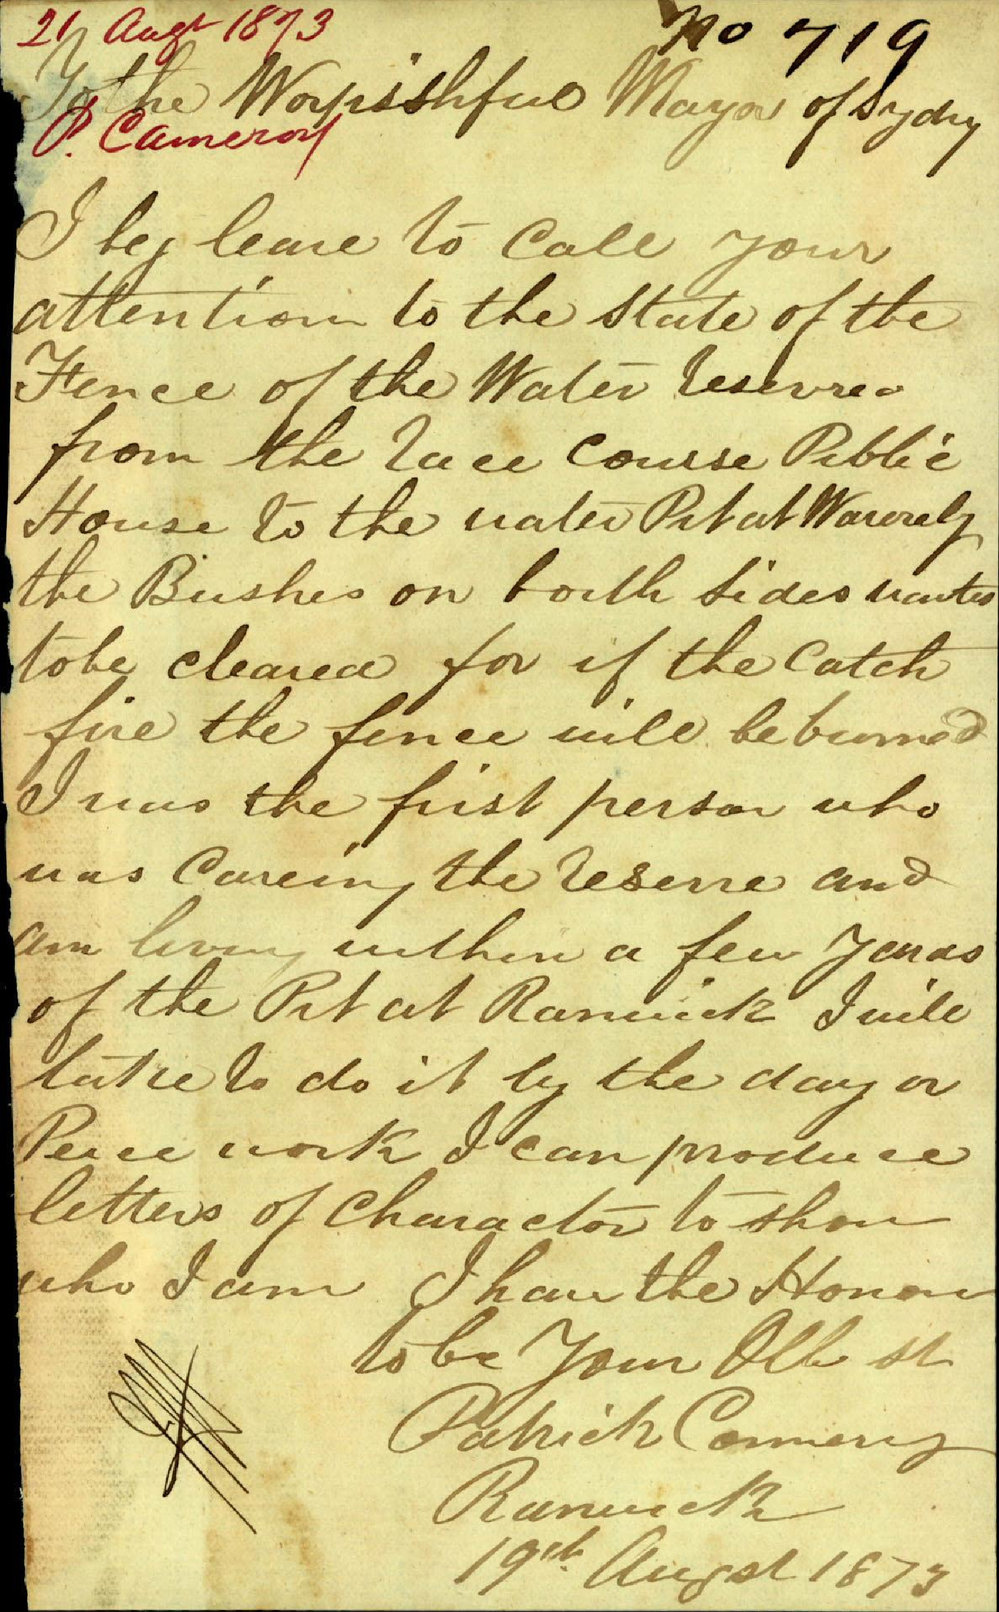 21 Augt 1873
No 719
To the Worpisshful Mayor of Sydny
P. Cameron
I beg leave to Call your
attention to the State of the
Fence of the Water Reserve
from the Race Course Public
House to the water Pit at Waverly
the Bushes on both Sides wants
to be cleared for if the Catch
fire the fence will be burned
I was the first person who
was Careing the Reserve and
am living within a few Yards
of the Pit at Ranwick I will
take to do it by the day or
Peice work I can produce
letters of Charactor to show
who I am I have the Honour
to be Your Obb st
Patrick
Ranwick
19th Augst 1873